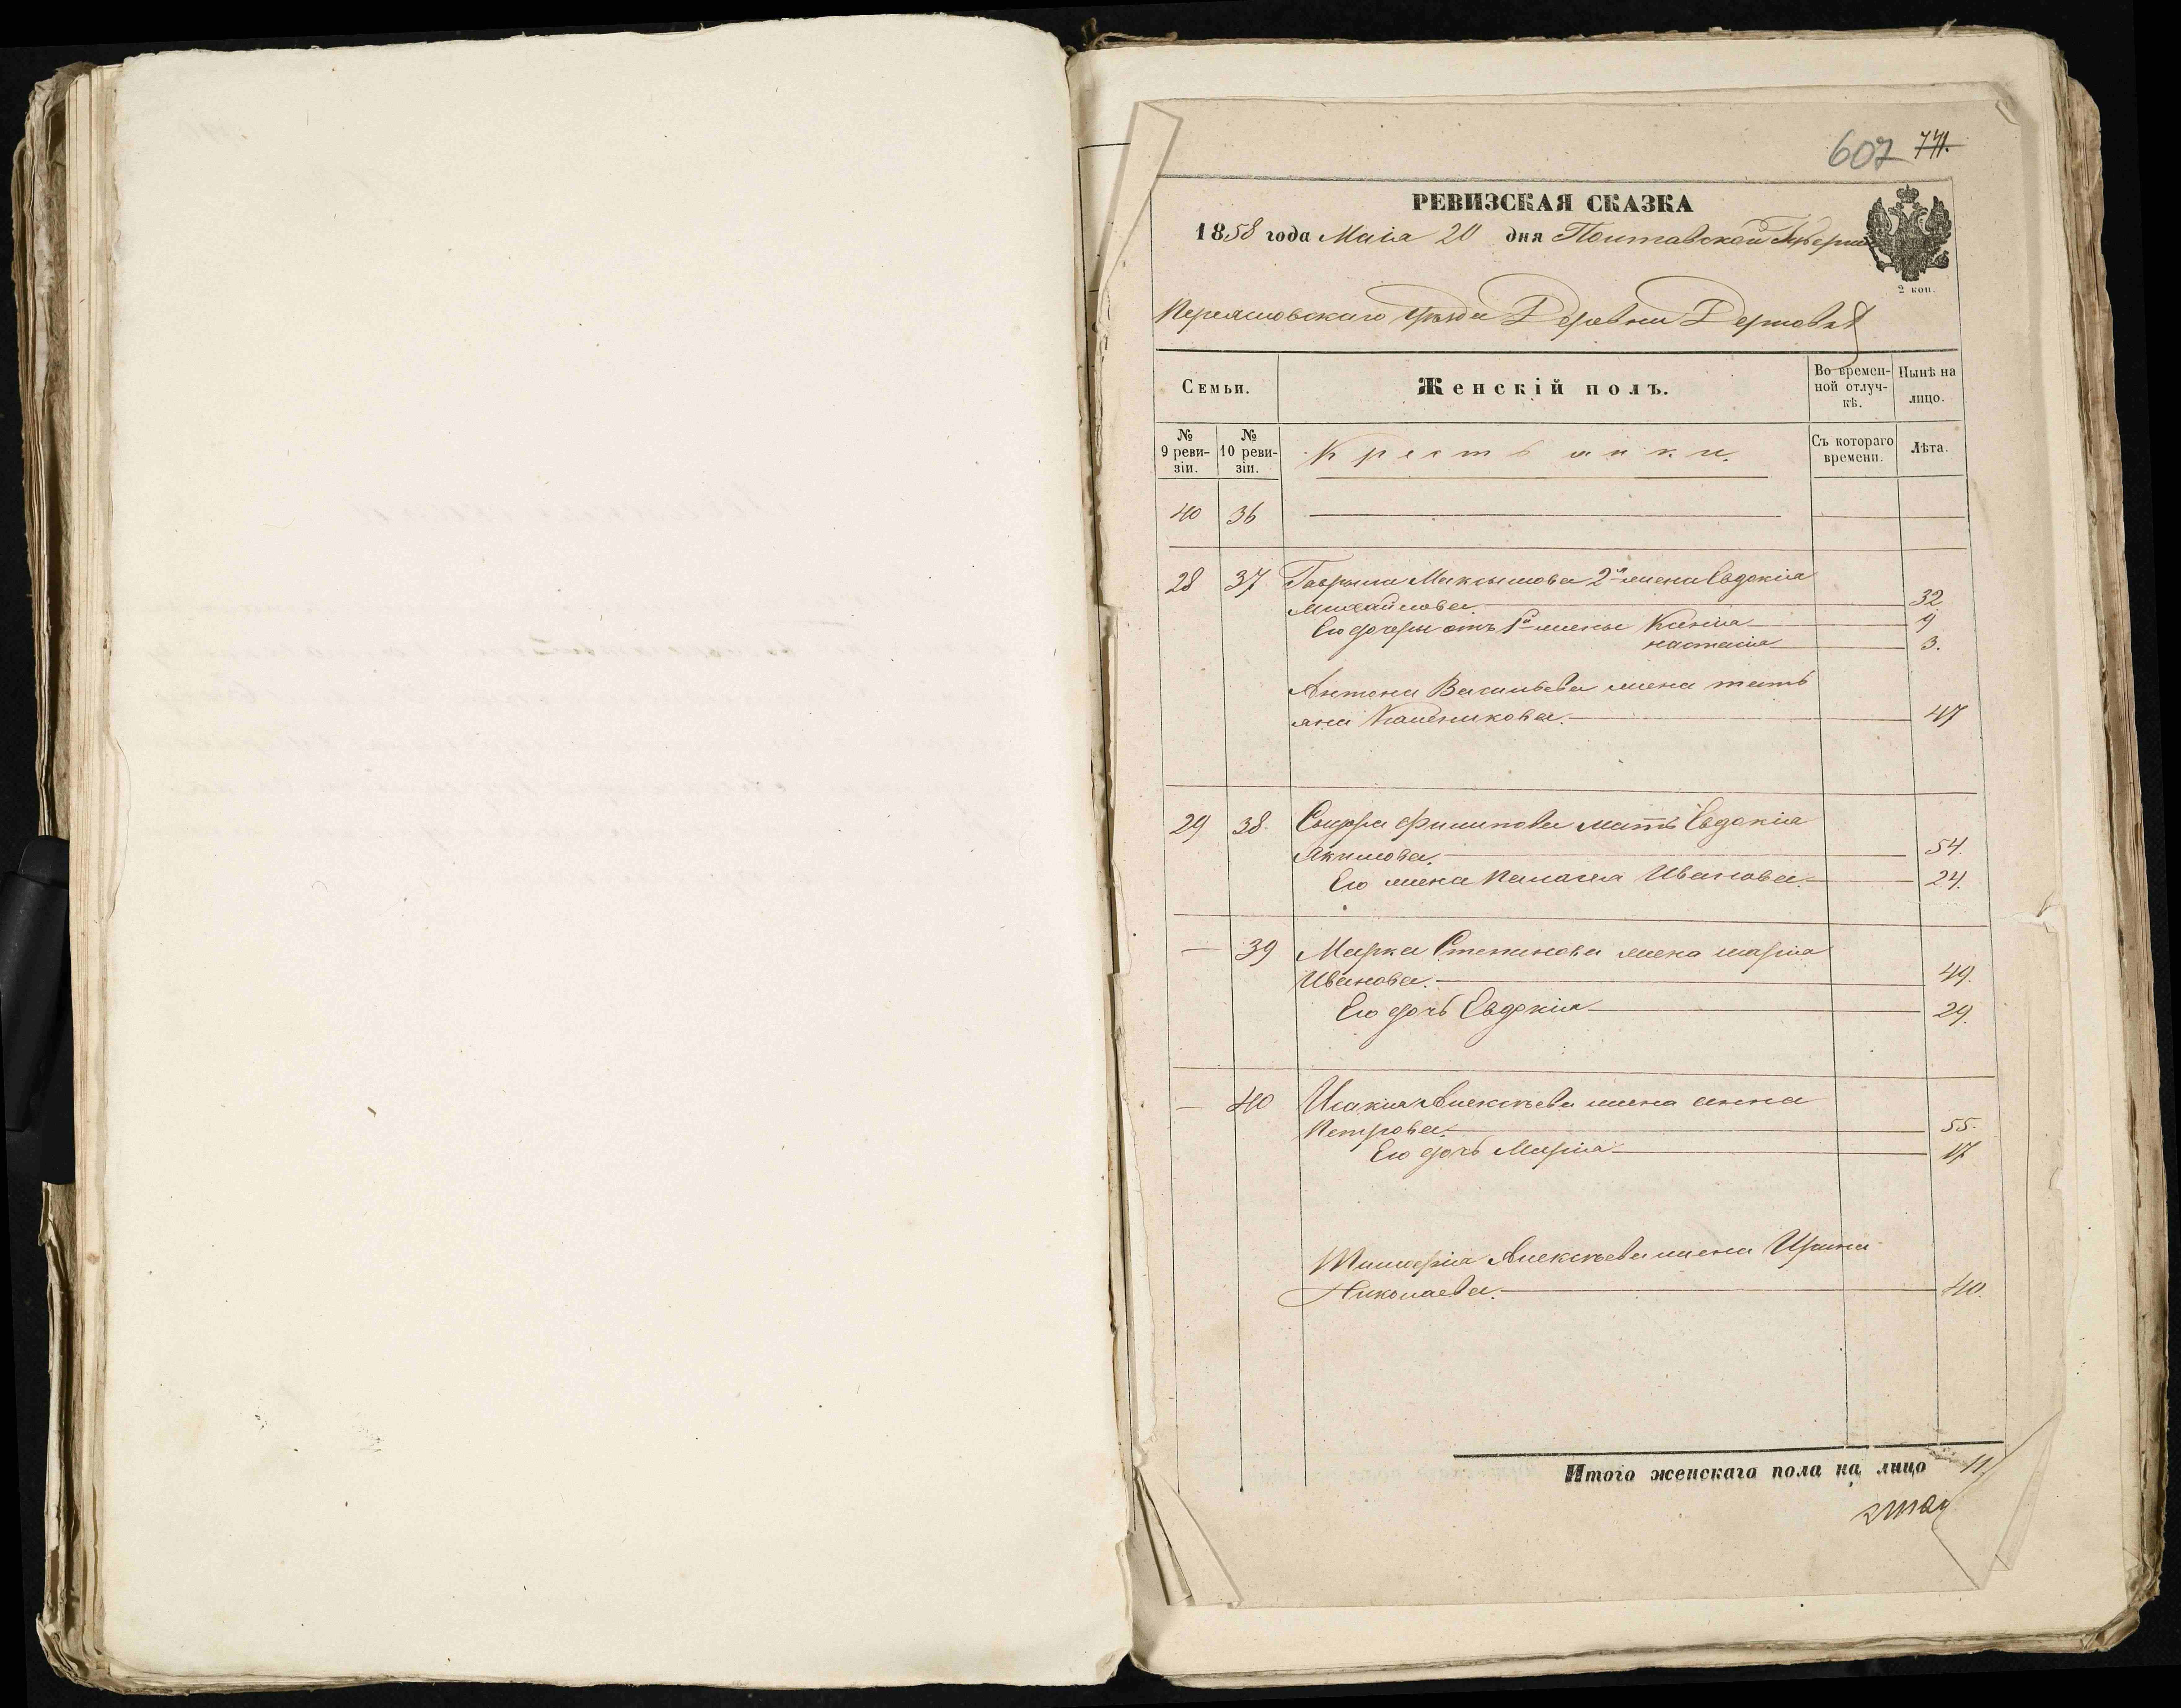 607 741.
РЕВИЗСКАЯ СКАЗКА
1858 года Маія 20 дня Полтавской Губерніи
2 коп.
Переяславскаго уѣзда Деревни
Семьи.
Женскій полъ.
Во времен-
ной отлуч-
кѣ.
Нынѣ на
лицо.
№
9 реви-
зіи.
№
10 реви-
зіи.
Крестьянки.
Съ котораго
времени.
Лѣта.
40 36
28 37 Гаврила Максимова 2я жена Евдокія
Михайлова. 32
Его дочери отъ 1й жены Ксенія 9
Настасія 3.
Антона Васильева жена Тать
яна 47
29 38. Сидора Филипова мать Евдокія
Якимова. 54.
Его жена Паласея Иванова. 24.
— 39 Марка Степанова жена Марія
Иванова. 49.
Его дочь Евдокія 29.
— 40 Исакія Алексѣева жена Анна
Петрова. 55.
Его дочь Марія 17
Тимофѣя Алексѣева жена Ирина
Николаева. 40.
Итого женскаго пола на лицо 11.